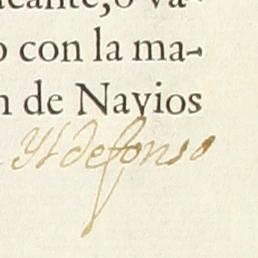 acante, o va-
o con la ma-
n de Navios
Yldefonso